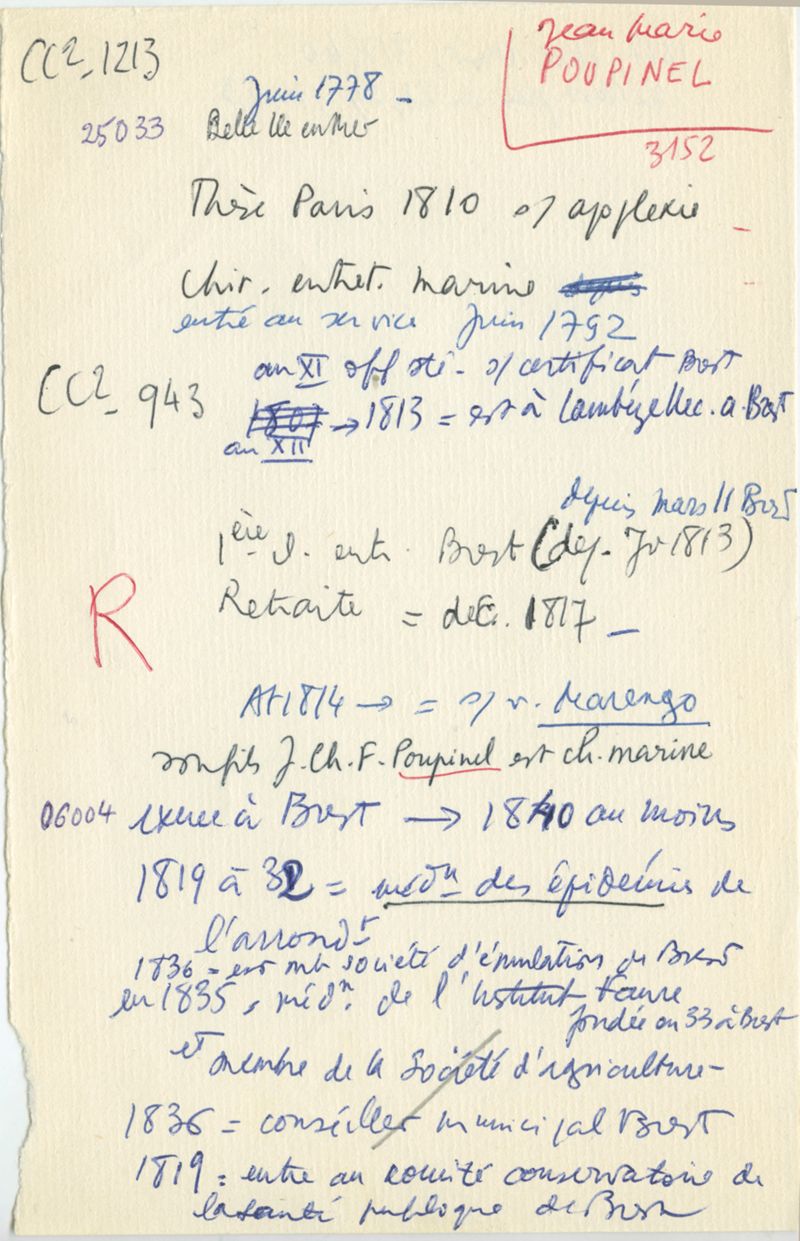 CC2_1213
Jean Marie
POUPINEL
3152
Juin 1778 -
25033 Belle Ile en Mer
Thèse Paris 1810 s/ applexie
Chir. entret. marine depuis
entré au service Juin 1792
an XI off sté - s/ certificat Brest
CC2_943
1807 → 1813 = est à Lambézellec. a. Brest
an XII
depuis mars 11 Brest
1ère cl. entr. Brest (dep. Jv 1813)
R
Retraite = déc. 1817 _
At 1814 → = s/ v. Marengo
son fils J. Ch. F. Poupinel est ch. marine
06004 exerce à Brest → 1840 au moins
1819 à 32 = médn des épidémies de
l'arrondt
1836 = est mb société d'émulation de Brest
en 1835, médn. de l'Institut Favre
fondée en 33 à Brest
et membre de la Société d'agriculture -
1836 = conseiller municipal Brest
1819 = entre au comité conservatoire de
la santé publique de Brest